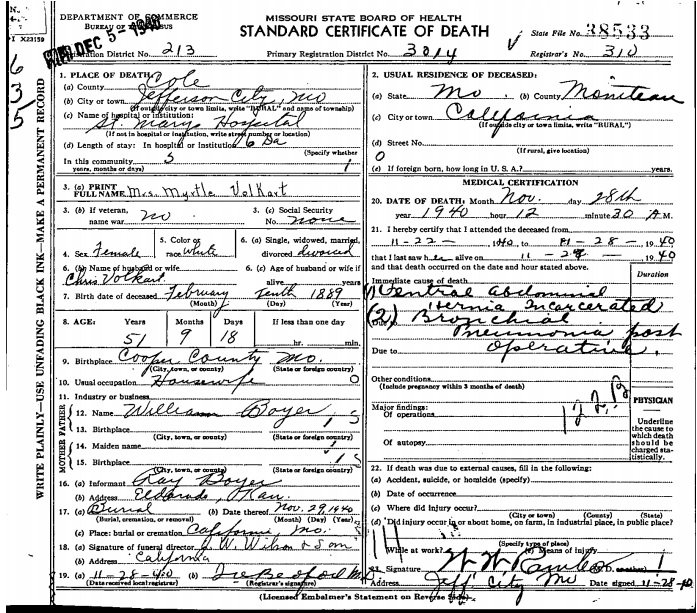 DEPARTMENT OF COMMERCE
MISSOURI STATE BOARD OF HEALTH
STANDARD CERTIFICATE OF DEATH
State File No. 38533
DEC 5 - 1940
I X23159
Registration District No. 213
Primary Registration District No. 3014
Registrar's No. 310
635
WRITE PLAINLY—USE UNFADING BLACK INK—MAKE A PERMANENT RECORD
1. PLACE OF DEATH:
(a) County Cole
(b) City or town Jefferson City, Mo
(If outside city or town limits, write "RURAL" and name of township)
(c) Name of hospital or institution:
St. Marys Hospital
(If not in hospital or institution, write street number or location)
(d) Length of stay: In hospital or institution 6 Da
(Specify whether
In this community 5
years, months or days)
3. (a) PRINT FULL NAME Mrs. Myrtle Volkart
3. (b) If veteran, name war no
3. (c) Social Security No. none
4. Sex Female
5. Color or race white
6. (a) Single, widowed, married, divorced divorced
6. (b) Name of husband or wife Chris Volkart
6. (c) Age of husband or wife if alive years
7. Birth date of deceased February Tenth 1889
(Month) (Day) (Year)
8. AGE: Years Months Days If less than one day
51 9 18 hr. min.
9. Birthplace Cooper County Mo.
(City, town, or county) (State or foreign country)
10. Usual occupation Housewife
11. Industry or business
MOTHER FATHER
12. Name William Boyer
13. Birthplace
(City, town, or county) (State or foreign country)
14. Maiden name
15. Birthplace
(City, town, or county) (State or foreign country)
16. (a) Informant Ray Boyer
(b) Address Eldorado, Kan.
17. (a) Burial (b) Date thereof Nov. 29, 1940
(Burial, cremation, or removal) (Month) (Day) (Year)
(c) Place: burial or cremation California Mo.
18. (a) Signature of funeral director J. W. Wilson & Son
(b) Address California
19. (a) 11-28-40 (b)
(Date received local registrar) (Registrar's signature)
2. USUAL RESIDENCE OF DECEASED:
(a) State Mo (b) County Moniteau
(c) City or town California
(If outside city or town limits, write "RURAL")
(d) Street No.
(If rural, give location)
0
(e) If foreign born, how long in U. S. A.? years.
MEDICAL CERTIFICATION
20. DATE OF DEATH: Month Nov. day 28th
year 1940 hour 12 minute 30 A.M.
21. I hereby certify that I attended the deceased from
11-22-, 1940, to 11-28-, 1940
that I last saw her alive on 11-28-, 1940
and that death occurred on the date and hour stated above.
Duration
Immediate cause of death
(1) Ventral Abdominal
Hernia Incarcerated
(2) Bronchial
Pneumonia post
Due to operative.
Other conditions
(Include pregnancy within 3 months of death)
122B
Major findings:
Of operations
Of autopsy
PHYSICIAN
Underline the cause to which death should be charged statistically.
22. If death was due to external causes, fill in the following:
(a) Accident, suicide, or homicide (specify)
(b) Date of occurrence
(c) Where did injury occur?
(City or town) (County) (State)
(d) Did injury occur in or about home, on farm, in industrial place, in public place?
(Specify type of place)
While at work? (e) Means of injury
23. Signature
Address Jeff City Mo Date signed 11-28-40
(Licensed Embalmer's Statement on Reverse Side)